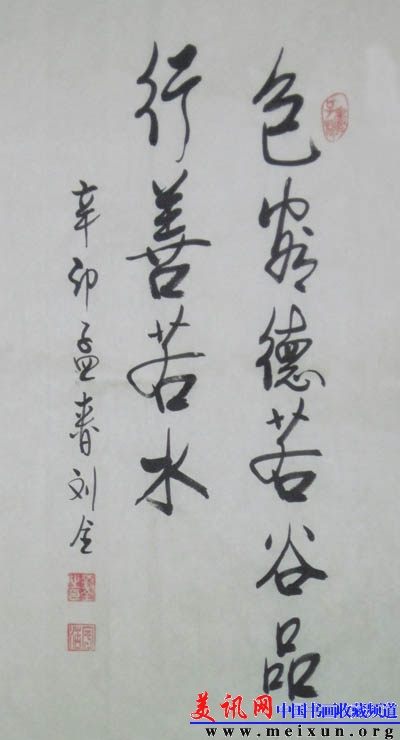 包容德若谷品
行善若水
辛卯孟春刘全
美讯网 中国书画收藏频道
www.meixun.org